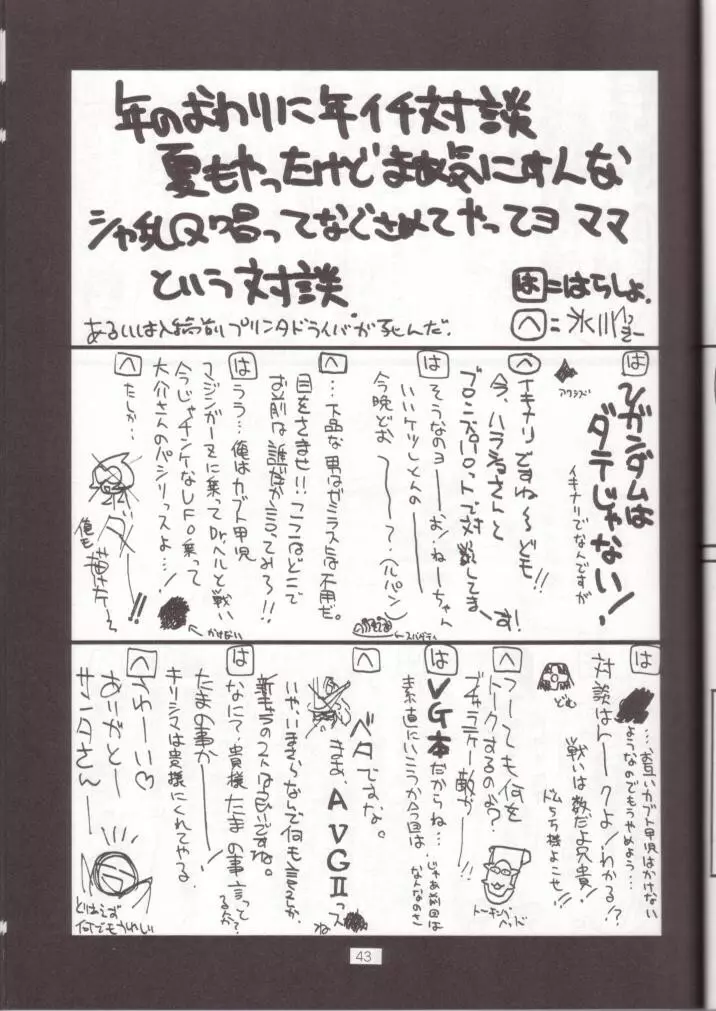 年のおわりに年イチ対談
夏もやったけどまあ気にすんな
シャ乱Q唱ってなぐさめてやってヨ ママ
という対談
は=はらしょ.
へ=氷川
あるいは入稿前プリンタドライバが死んだ.
は
νガンダムは
ダテじゃない!
イキナリでなんですが
アクシズ
へ
イキナリですね〜どモ!!
今、ハラショさんと
ブロンズパロットで対談してます!
は
そうなのヨーーお!ねーちゃん
いいケツしとんのーー
今晩どお〜〜て、
へ
…下品な男はゼミラスには不用だ。
目をさませ!!ここはどこで
お前は誰だか言ってみろ!!
は
うう…俺はカブト甲児
マジンガーZに乗ってDr.ヘルと戦い
今じゃチンケなUFO乗って
大介さんのパシリっスよ…!
かけない
へ
たしか…
ダーー!!
俺も描けた
は
…お互いカブト甲児はかけない
ようなのでもうやめよう…
対談はトークよ!わかる!?
戦いは数だよ兄貴!
ドムら6機よこせ!!
どむ
へ
つーても何を
トークするのさ?
ブチャラティー敵か!!
トーキングヘッド
は
VG本だからね…
素直にいこうか今回は
じゃあ前回は
なんなのさ
へ
ベタですな。
まぁ、AVGⅡっスね
いや、いまさらなんで何も言えんが
新キャラの2人は良いですね。
は
なにて、貴様たまの事言ってるな?
たまの事かーー!
キリシマは貴様にくれてやる
へ
うわーい♡
ありがとー
サンタさんーー
とりあえず
何でもうれしい
43